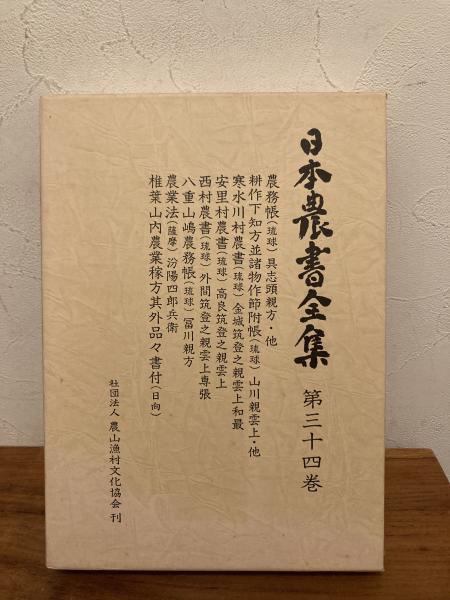 日本農書全集 第三十四巻
農務帳(琉球)具志頭親方・他
耕作下知方並諸物作節附帳(琉球)山川親雲上・他
寒水川村農書(琉球)金城筑登之親雲上和最
安里村農書(琉球)高良筑登之親雲上
西村農書(琉球)外間筑登之親雲上専張
八重山嶋農務帳(琉球)冨川親方
農業法(薩摩)汾陽四郎兵衛
椎葉山内農業稼方其外品々書付(日向)
社団法人 農山漁村文化協会 刊